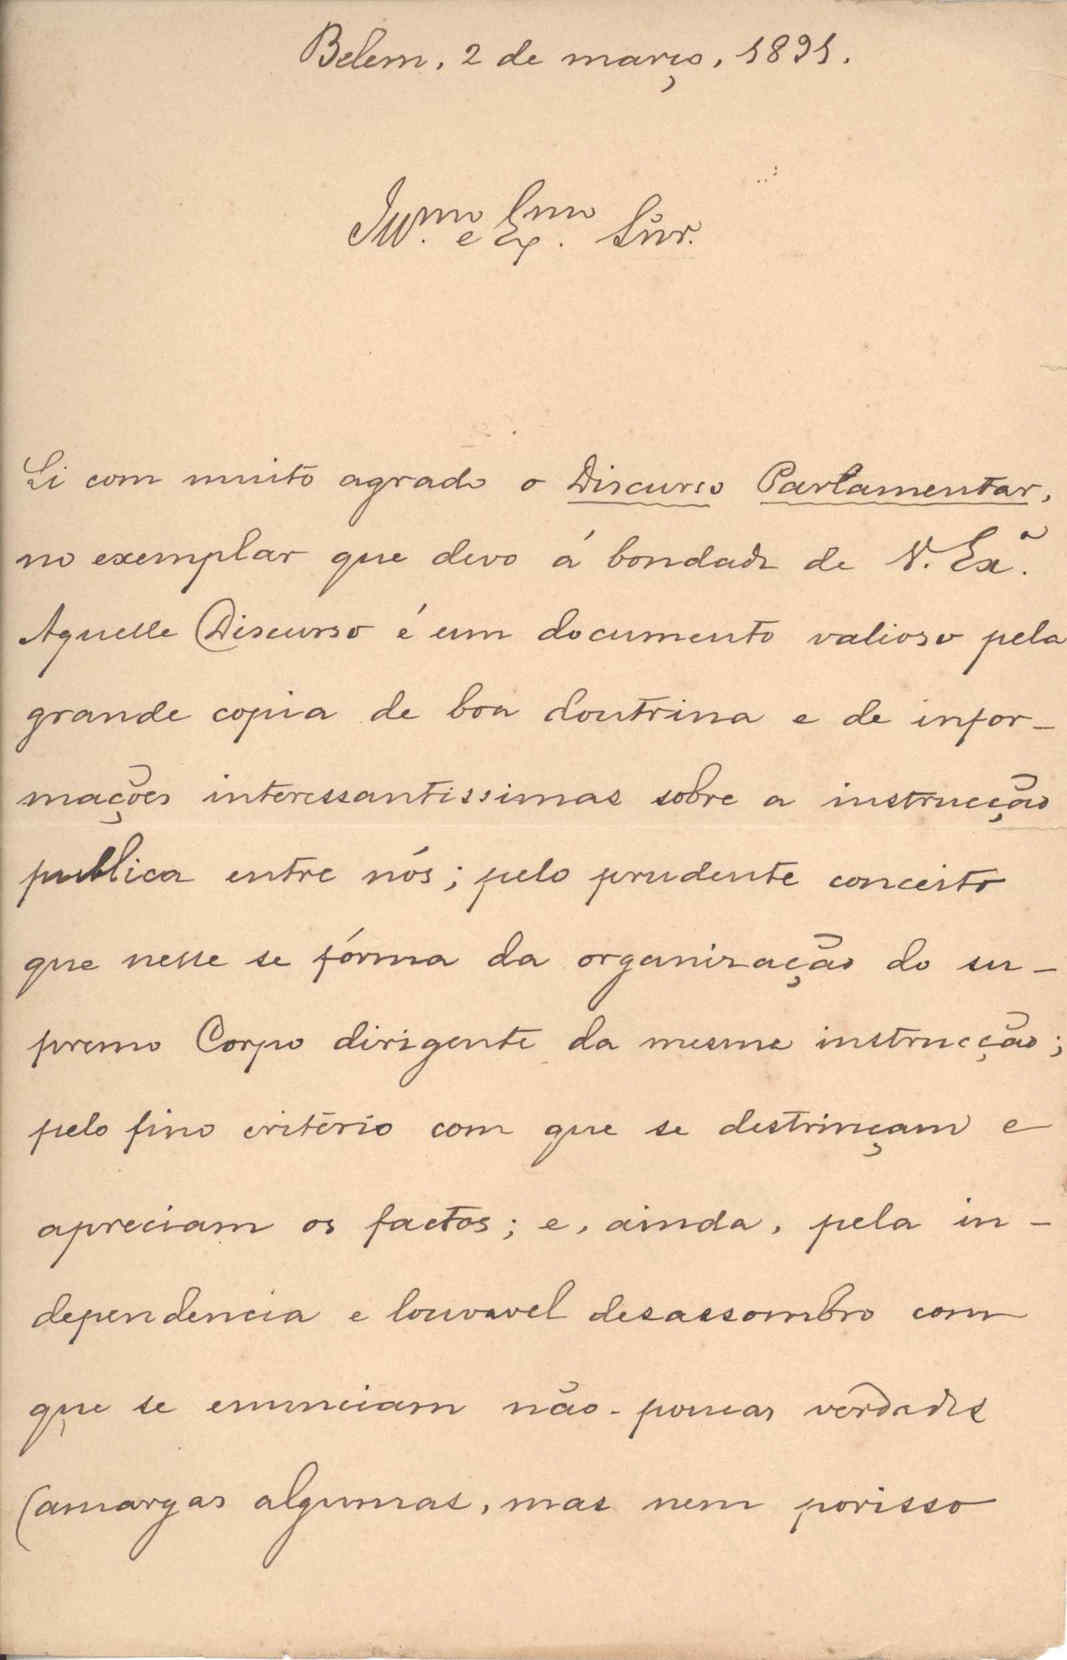 Belem, 2 de março, 1891.
Ill.mo e Ex.mo Snr.
Li com muito agrado o Discurso Parlamentar,
no exemplar que devo á bondade de V. Ex.a
Aquelle Discurso é um documento valioso pela
grande copia de boa doutrina e de infor-
mações interessantissimas sobre a instrucção
publica entre nós; pelo prudente conceito
que nelle se fórma da organização do su-
premo Corpo dirigente da mesma instrucção;
pelo fino critério com que se destrinçam e
apreciam os factos; e, ainda, pela in-
dependencia e louvavel desassombro com
que se enunciam não-poucas verdades
(amargas algumas, mas nem porisso